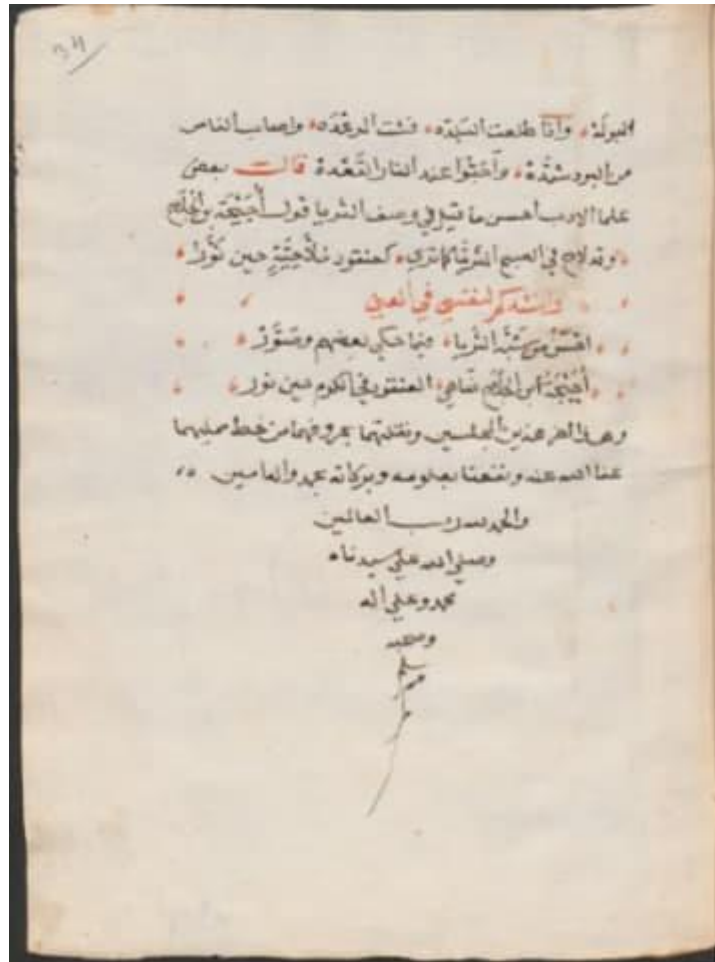 34
البولة، واذا طلعت البلدة، فشت الرعدة، واصاب الناس
من البرد شدة، واحثوا عند النار القعدة قالت بعض
علما الادب احسن ما قيل في وصف الثريا قول أحيحة بن الجلاح
وقد لاح في الصبح الثريا كما ترى، كعنقود ملاحية حين نور
وانشدكم لنفسي في المعنى
احسن من شبه الثريا، فيما حكى بعضهم وصور
أحيحة ابن الجلاح ضاهى، العنقود في الكرم حين نور
وهذا اخر هذين المجلسين ونقلتهما بحروفهما من خط ممليهما
عفا الله عنه ونفعنا بعلومه وبركاته بمحمد واله امين
والحمد لله رب العالمين
وصلى الله على سيدنا
محمد وعلى اله
وصحبه
وسلم